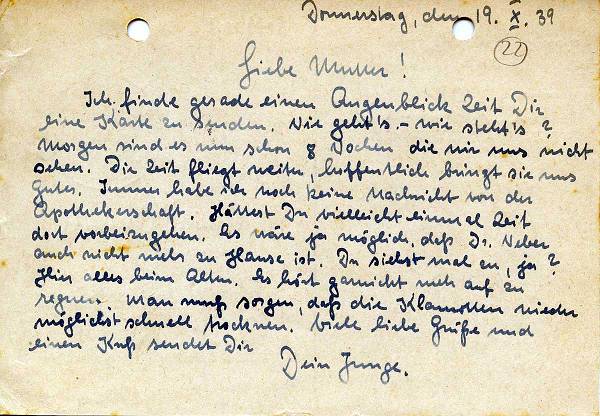 Donnerstag, den 19. X. 39
22
Liebe Mutter!
Ich finde gerade einen Augenblick Zeit Dir
eine Karte zu senden. Wie geht's – wie steht's?
Morgen sind es nun schon 8 Wochen die wir uns nicht
sehen. Die Zeit fliegt weiter, hoffentlich bringt sie uns
Gutes. Immer habe ich noch keine Nachricht von der
Apothekerschaft. Hättest Du vielleicht einmal Zeit
dort vorbeizugehen. Es wäre ja möglich, daß Dr. Weber
auch nicht mehr zu Hause ist. Du siehst mal zu, ja?
Hier alles beim Alten. Es hört garnicht mehr auf zu
regnen. Man muß sorgen, daß die Klamotten wieder
möglichst schnell trocknen. Viele liebe Grüße und
einen Kuß sendet Dir
Dein Junge.